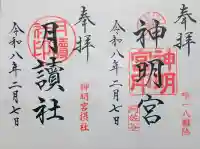 奉拝
神明宮
令和八年二月七日
奉拝
月讀社
神明宮摂社
令和八年二月七日